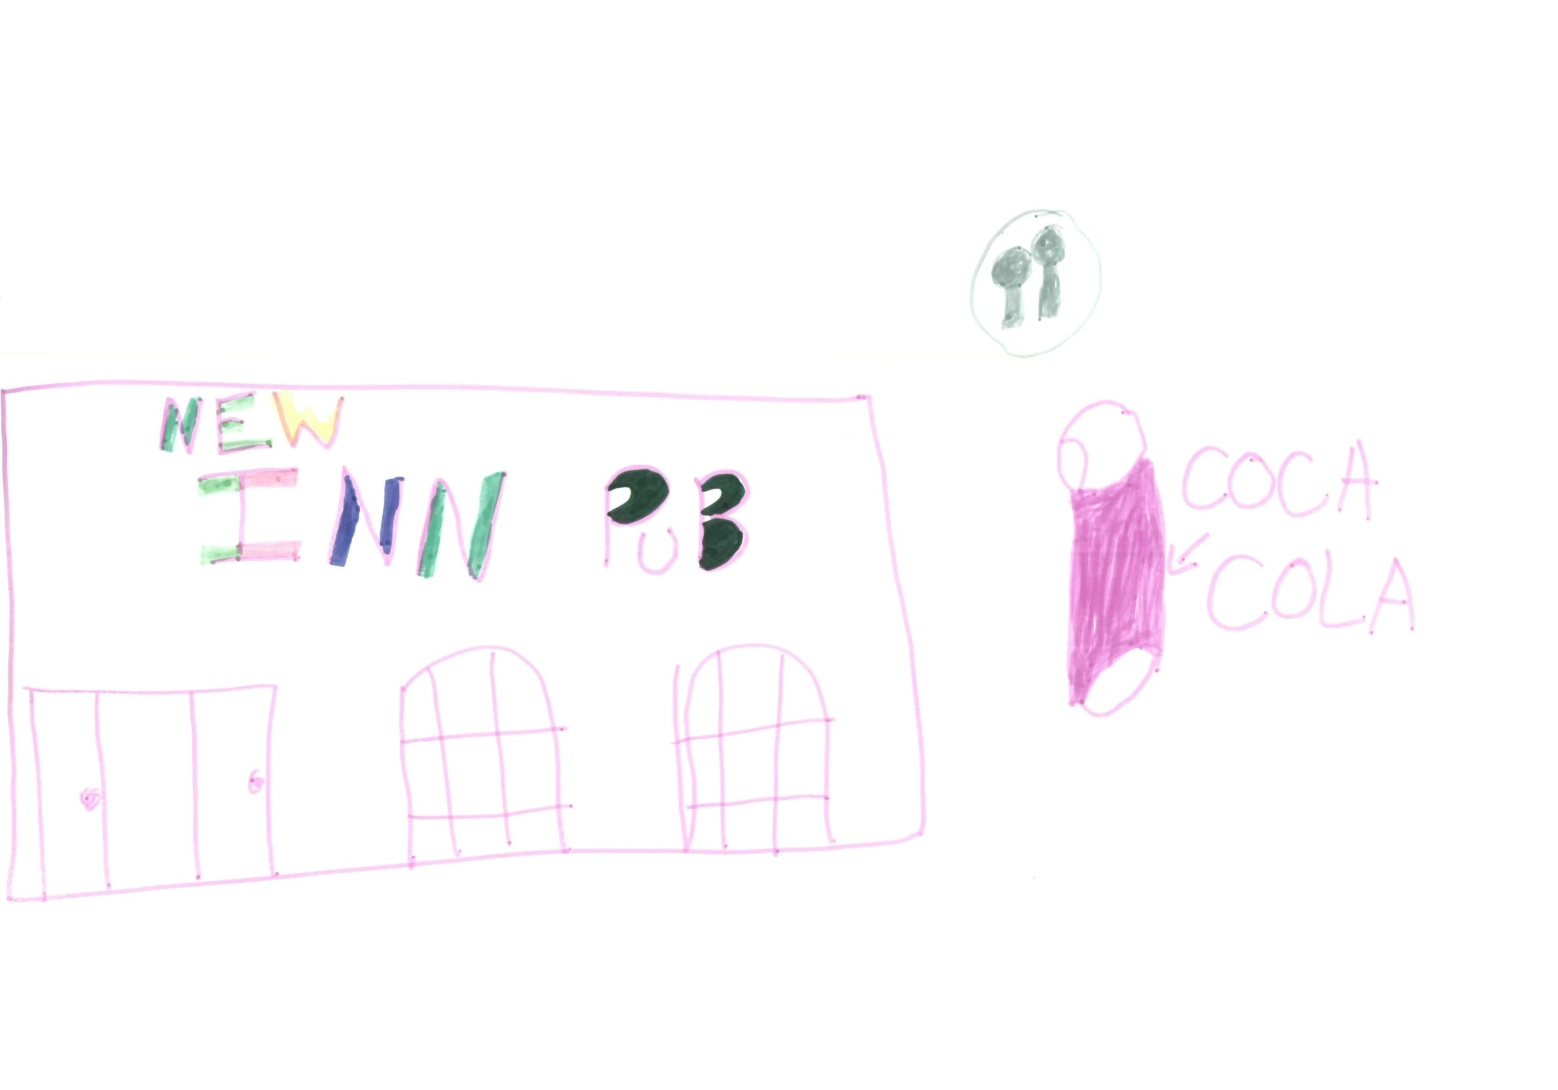 NEW
INN PUB
COCA
COLA